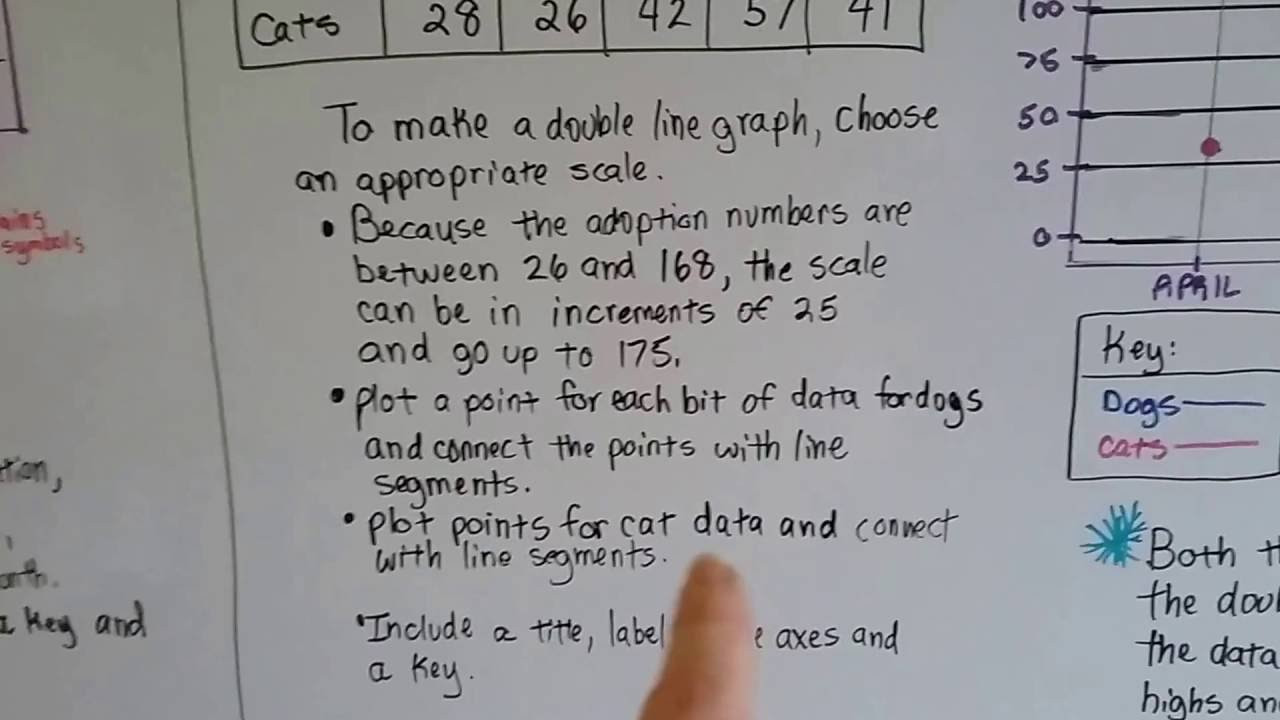 Cats 28 26 42 57 41
To make a double line graph, choose
an appropriate scale.
• Because the adoption numbers are
between 26 and 168, the scale
can be in increments of 25
and go up to 175.
• plot a point for each bit of data for dogs
and connect the points with line
segments.
• plot points for cat data and connect
with line segments.
• Include a title, label axes and
a key.
100
75
50
25
0
APRIL
Key:
Dogs
Cats
Both
the
the data
highs
symbols
a key and